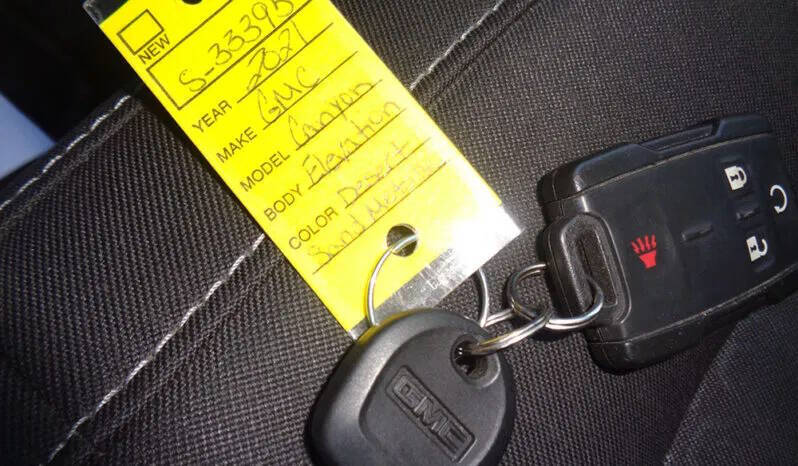 NEW
S-33395
YEAR 2021
MAKE GMC
MODEL Canyon
BODY Elevation
COLOR Desert
Sand Metallic
GMC